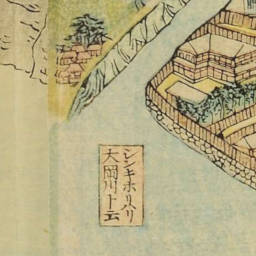 シンキホハリ
大岡川ト云